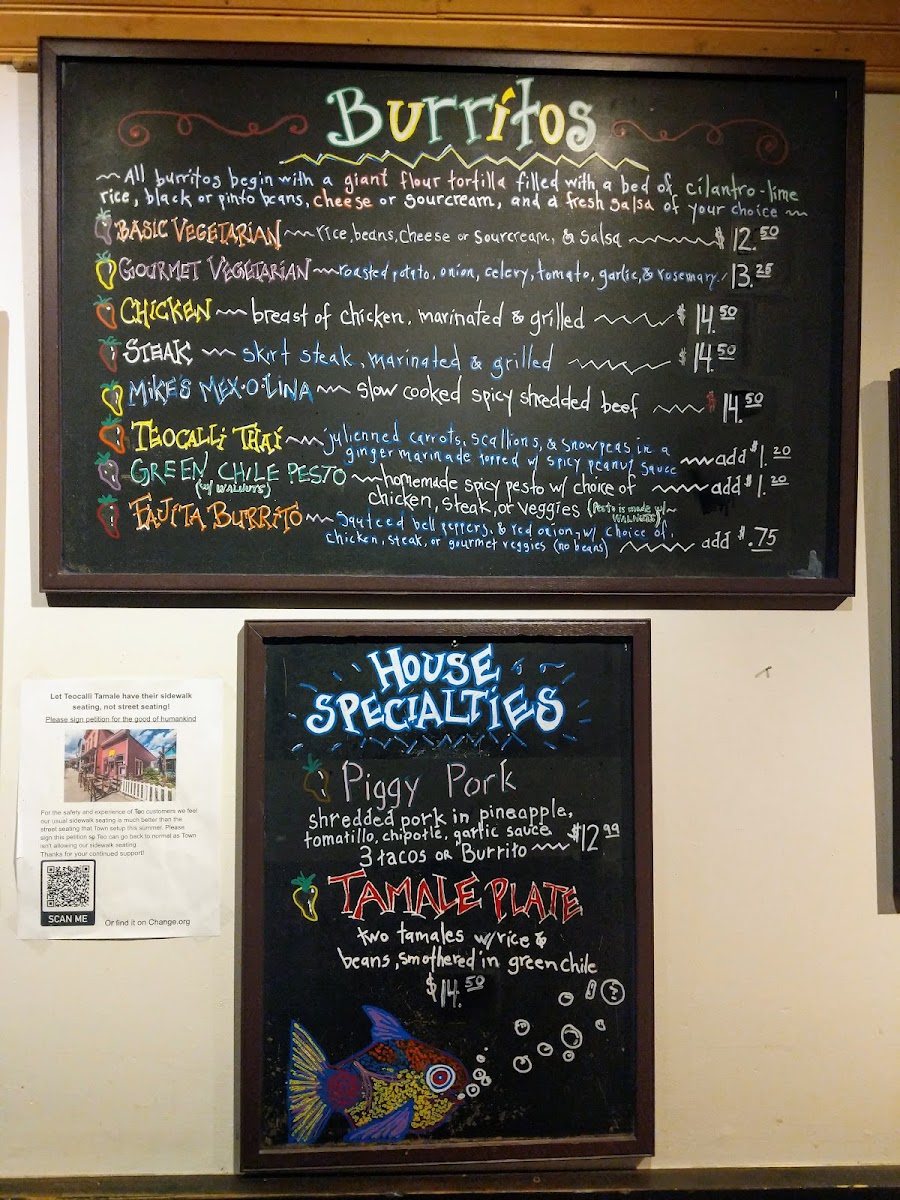 Burritos
~All burritos begin with a giant flour tortilla filled with a bed of cilantro-lime
rice, black or pinto beans, cheese or sourcream, and a fresh salsa of your choice~
BASIC VEGETARIAN~rice, beans, cheese or sourcream, & salsa $12.50
GOURMET VEGETARIAN~roasted potato, onion, celery, tomato, garlic, & rosemary 13.25
CHICKEN~breast of chicken, marinated & grilled $14.50
STEAK~skirt steak, marinated & grilled $14.50
MIKE'S MEX-O-LINA~slow cooked spicy shredded beef $14.50
TEOCALLI THAI~julienned carrots, scallions, & snowpeas in a
ginger marinade topped w/ spicy peanut sauce add $1.20
GREEN CHILE PESTO~homemade spicy pesto w/ choice of add $1.20
(w/ WALNUTS) chicken, steak, or veggies (Pesto is made w/
WALNUTS)
FAJITA BURRITO~sauteed bell peppers, & red onion, w/ choice of,
chicken, steak, or gourmet veggies (no beans) add $.75
HOUSE
SPECIALTIES
Piggy Pork
shredded pork in pineapple,
tomatillo, chipotle, garlic sauce
3 tacos or Burrito $12.99
TAMALE PLATE
two tamales w/rice &
beans, smothered in green chile
$14.50
Let Teocalli Tamale have their sidewalk
seating, not street seating!
Please sign petition for the good of humankind
For the safety and experience of Teo customers we feel
our usual sidewalk seating is much better than the
street seating that Town setup this summer. Please
sign this petition so Teo can go back to normal as Town
isn't allowing our sidewalk seating.
Thanks for your continued support!
SCAN ME
Or find it on Change.org